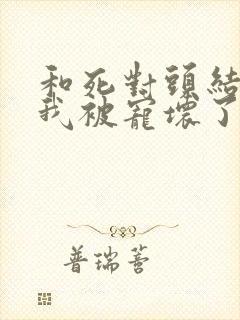 和死對頭結
我被寵壞了
普瑞蕾